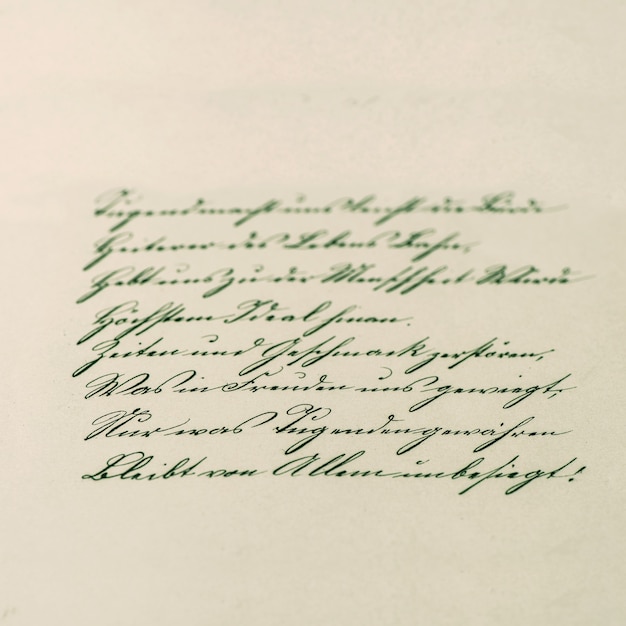 Tugend macht uns leicht die Bürde
Heiterer des Lebens Bahn,
Hebt uns zu der Menschheit Würde
Höchstem Ideal hinan.
Zeiten und Geschmack zerstören,
Was in Freuden uns gewiegt;
Nur was Tugenden gewähren
Bleibt von Allem unbesiegt!